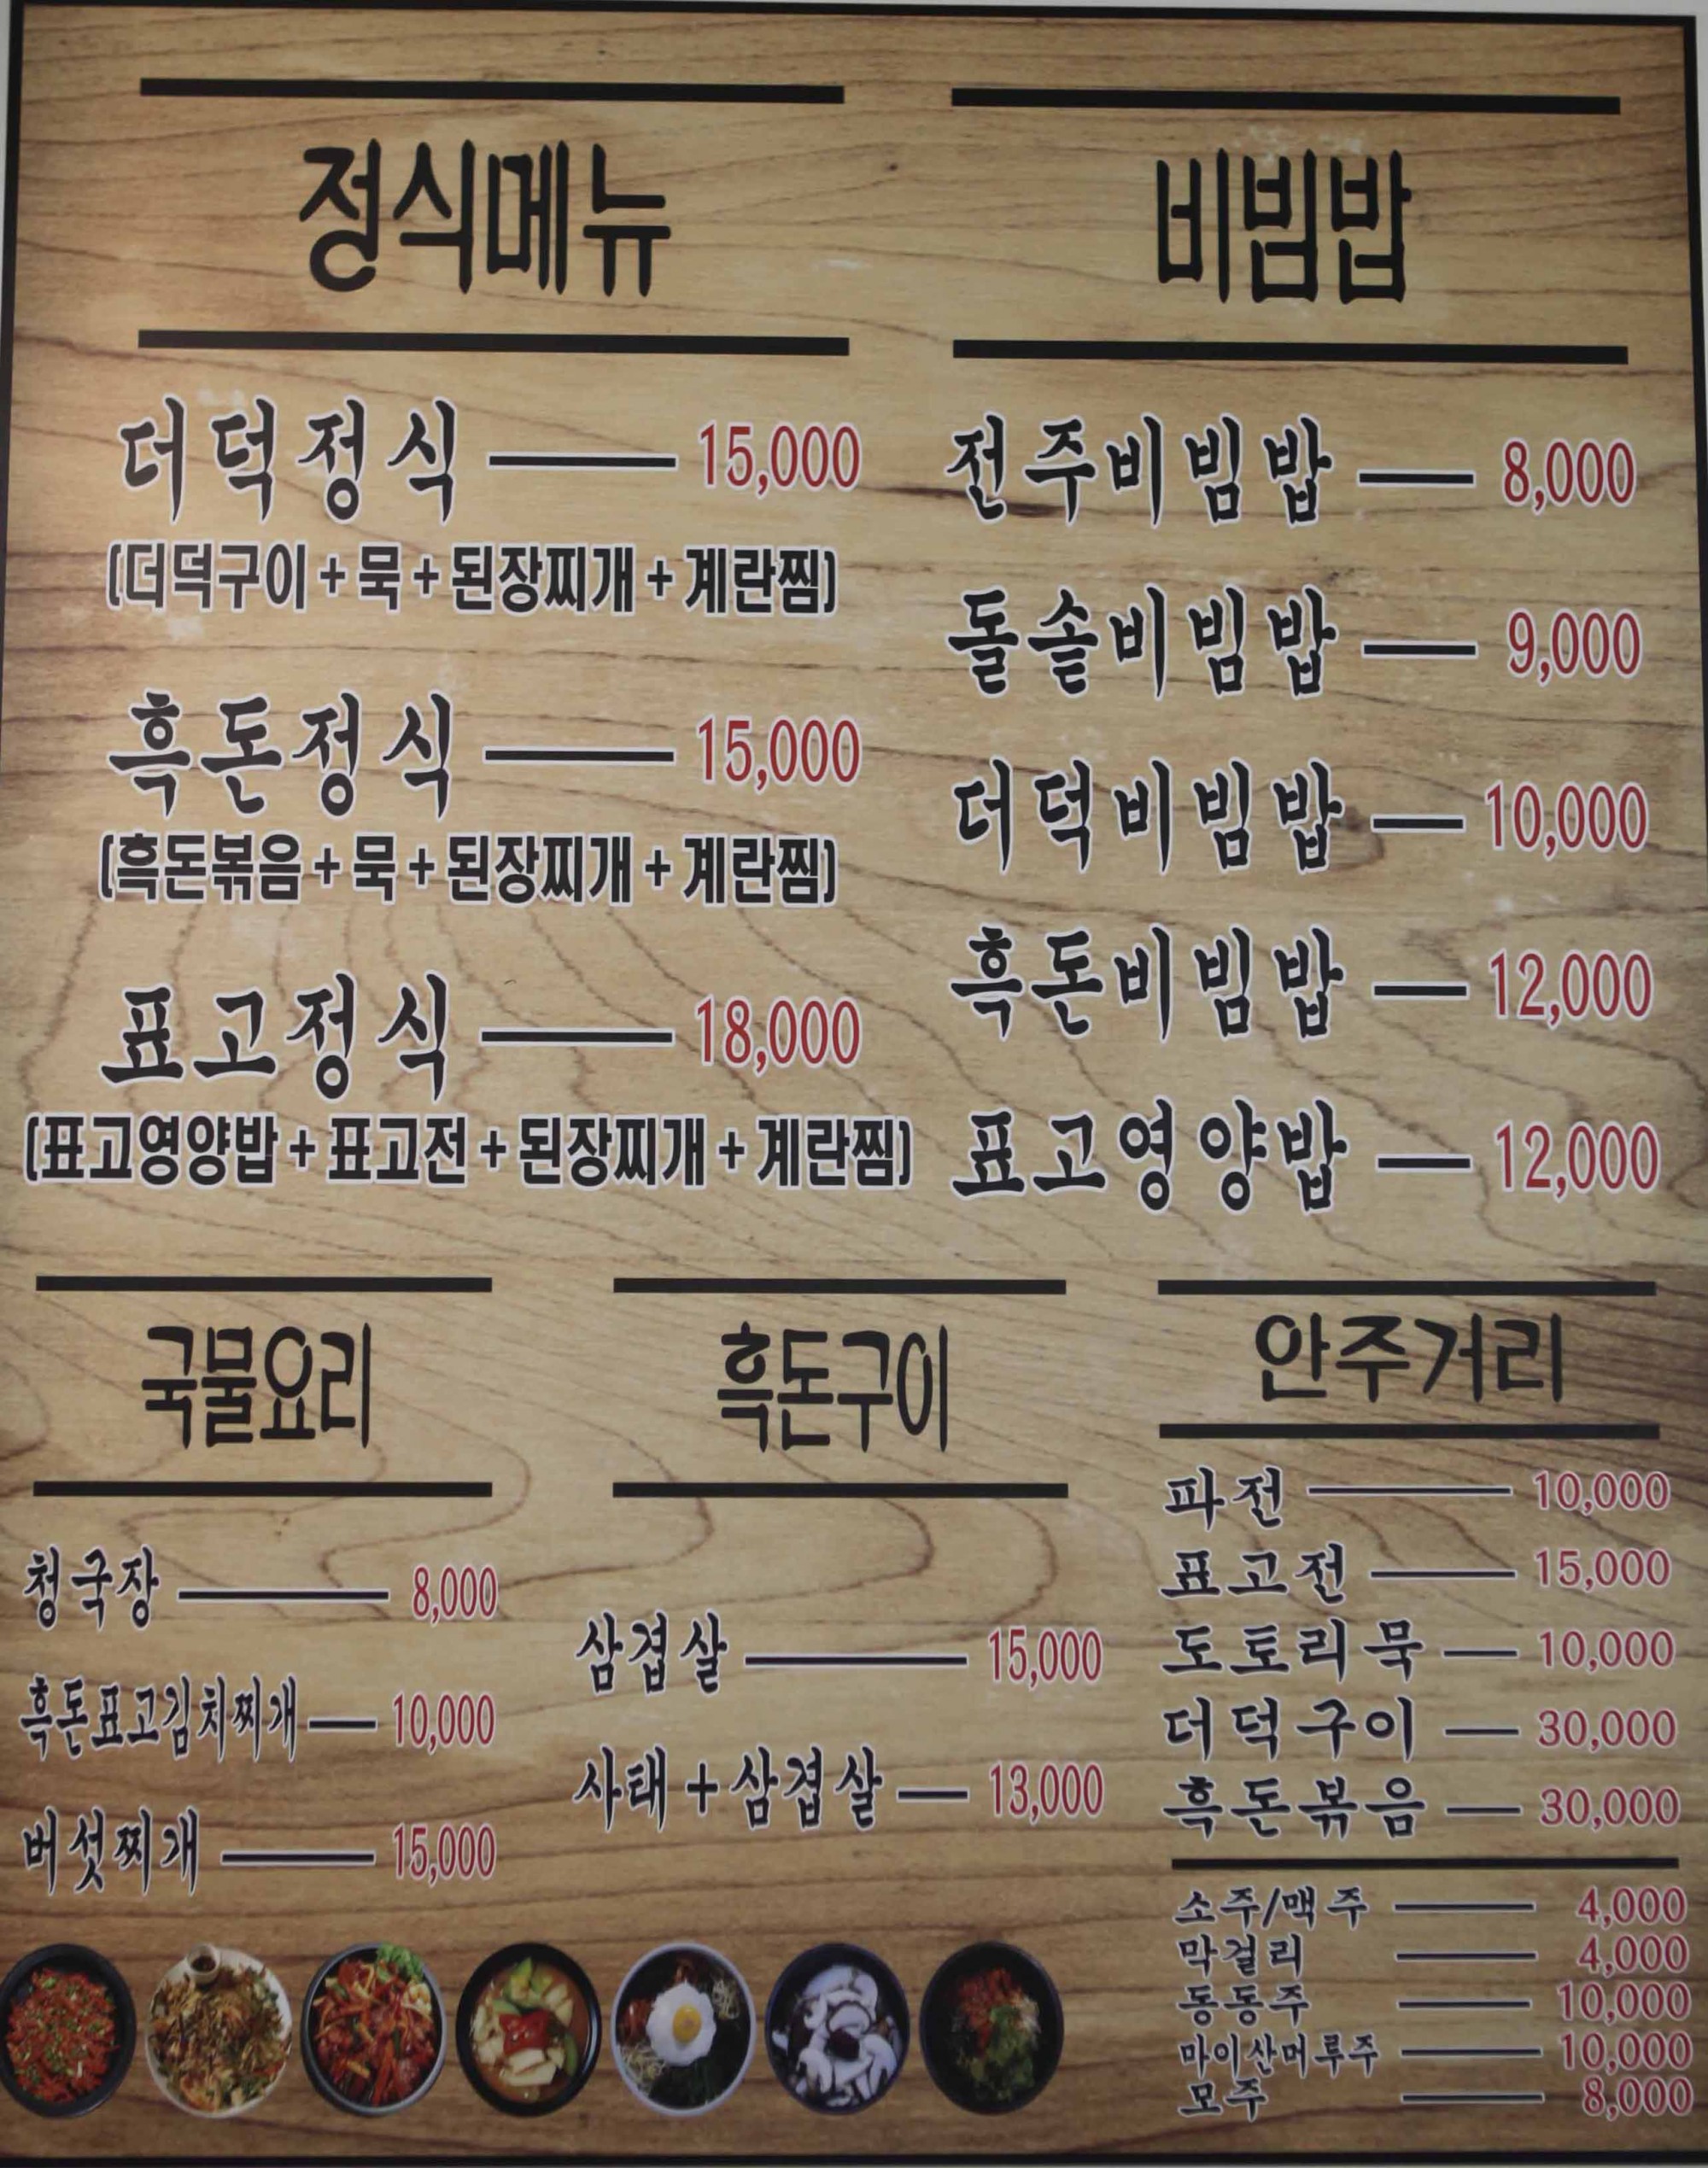 정식메뉴
더덕정식 15,000
(더덕구이 + 묵 + 된장찌개 + 계란찜)
흑돈정식 15,000
(흑돈볶음 + 묵 + 된장찌개 + 계란찜)
표고정식 18,000
(표고영양밥 + 표고전 + 된장찌개 + 계란찜)
비빔밥
전주비빔밥 8,000
돌솥비빔밥 9,000
더덕비빔밥 10,000
흑돈비빔밥 12,000
표고영양밥 12,000
국물요리
청국장 8,000
흑돈표고김치찌개 10,000
버섯찌개 15,000
흑돈구이
삼겹살 15,000
사태+삼겹살 13,000
안주거리
파전 10,000
표고전 15,000
도토리묵 10,000
더덕구이 30,000
흑돈볶음 30,000
소주/맥주 4,000
막걸리 4,000
동동주 10,000
마이산머루주 10,000
모주 8,000